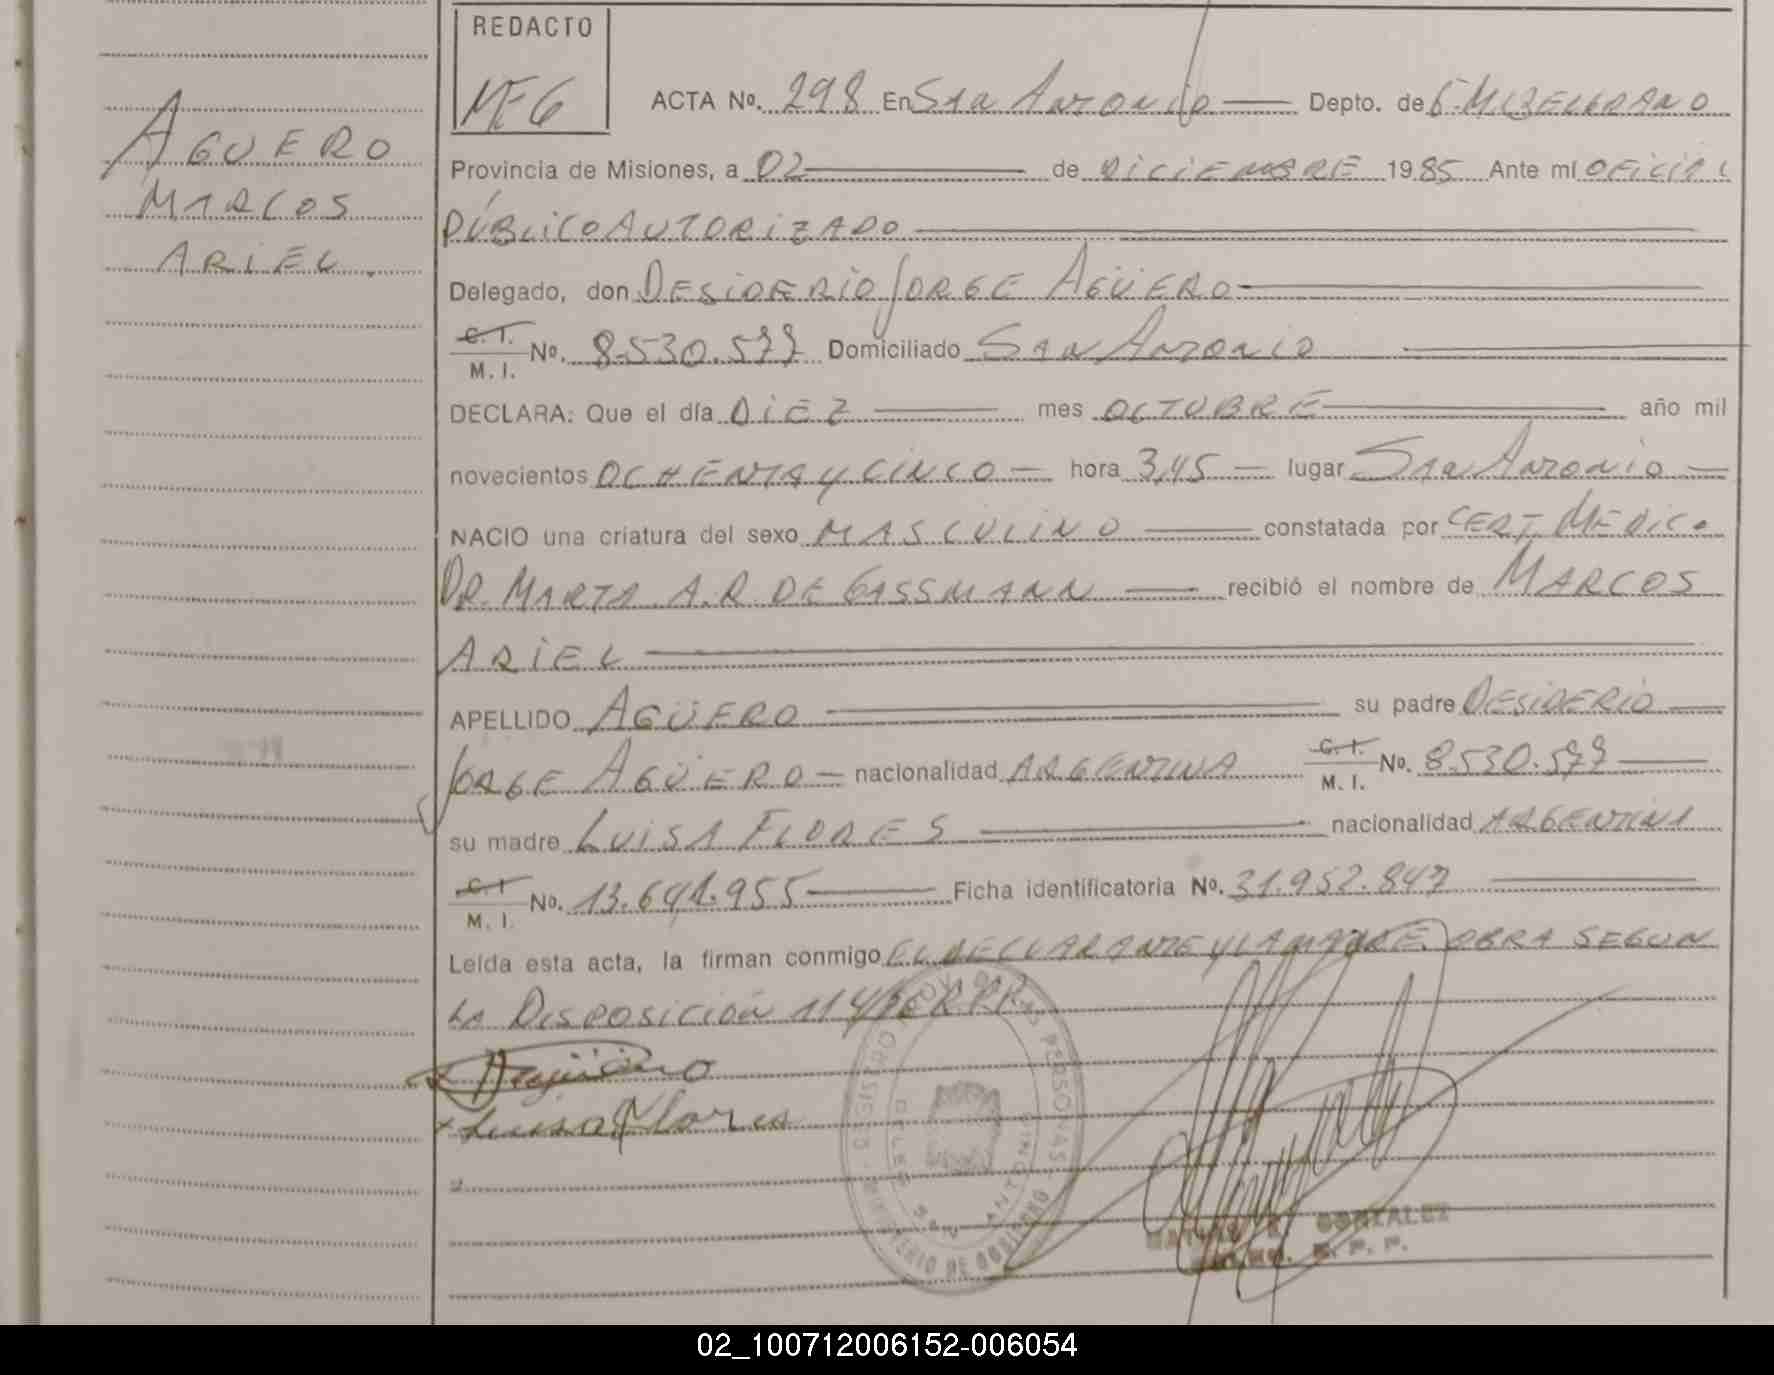 REDACTO
MEG
ACTA No. 298 En San Antonio Depto. de G. M. BELGRANO
AGÜERO
MARCOS
ARIEL.
Provincia de Misiones, a 02 de DICIEMBRE 1985 Ante mí OFICIAL
PÚBLICO AUTORIZADO
Delegado, don DESIDERIO JORGE AGÜERO
C. I.
M. I. No. 8.530.577 Domiciliado SAN ANTONIO
DECLARA: Que el día DIEZ mes OCTUBRE año mil
novecientos OCHENTA y CINCO hora 3,45 lugar SAN ANTONIO
NACIO una criatura del sexo MASCULINO constatada por CERT. MÉDICO
DR. MARTA A.R. DE GASSMANN recibió el nombre de MARCOS
ARIEL
APELLIDO AGÜERO su padre DESIDERIO
JORGE AGÜERO nacionalidad ARGENTINA C. I. M. I. No. 8.530.577
su madre LUISA FLORES nacionalidad ARGENTINA
C. I.
M. I. No. 13.641.955 Ficha identificatoria No. 31.952.847
Leída esta acta, la firman conmigo EL DECLARANTE y LA MADRE. OBRA SEGÚN
LA DISPOSICIÓN 114/ R.P.P.
x Agüero
x Luisa Flores
REGISTRO PROV. DE LAS PERSONAS
MINISTERIO DE GOBIERNO
DELEG. SAN ANTONIO
GONZALEZ
R. P. P.
02_100712006152-006054